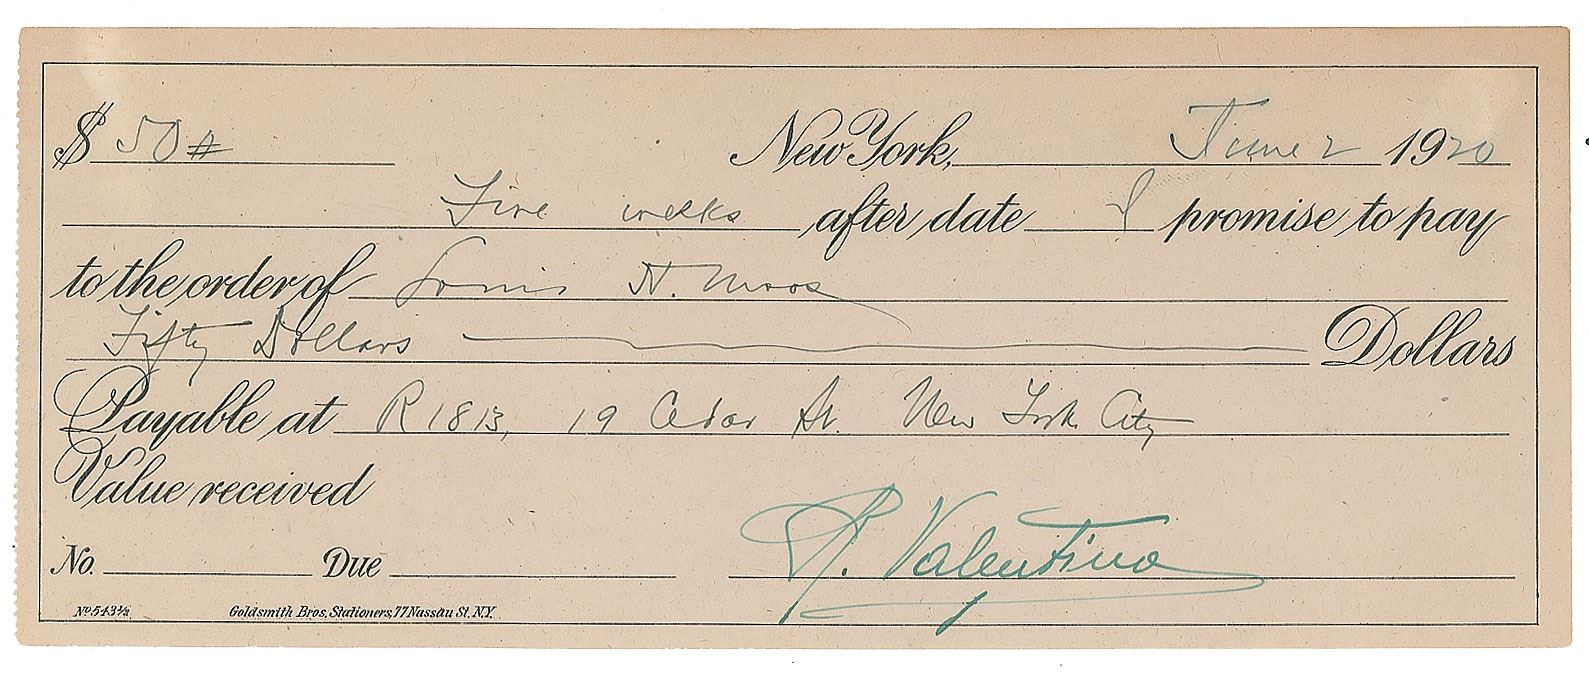 $ 50 #  New York, June 2 1920
Five weeks after date I promise to pay
to the order of Louis H. Moos
Fifty Dollars Dollars
Payable at R1813, 19 Cedar St. New York City
Value received
No. Due R. Valentino
No 543½ Goldsmith Bros, Stationers, 77 Nassau St. N.Y.